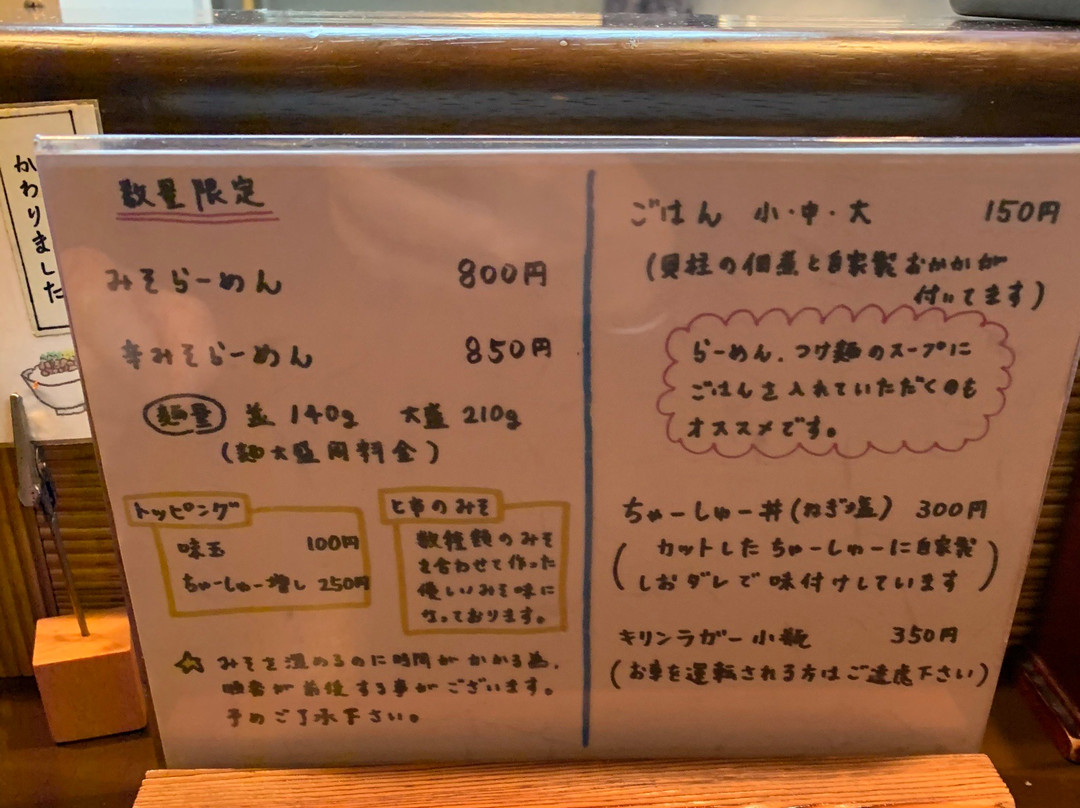 かわりました
数量限定
みそらーめん 800円
辛みそらーめん 850円
麺量 並 140g 大盛 210g
(麺大盛同料金)
トッピング
味玉 100円
ちゃーしゅー増し 250円
と幸のみそ
数種類のみそ
を合わせて作った
優しいみそ味に
なっております。
☆ みそを温めるのに時間がかかる為、
順番が前後する事がございます。
予めご了承下さい。
ごはん 小・中・大 150円
(貝柱の佃煮と自家製おかかが
付いてます)
らーめん、つけ麺のスープに
ごはんを入れていただくのも
オススメです。
ちゃーしゅー丼(ねぎ塩) 300円
(カットしたちゃーしゅーに自家製
しおダレで味付けしています)
キリンラガー小瓶 350円
(お車を運転される方はご遠慮下さい)